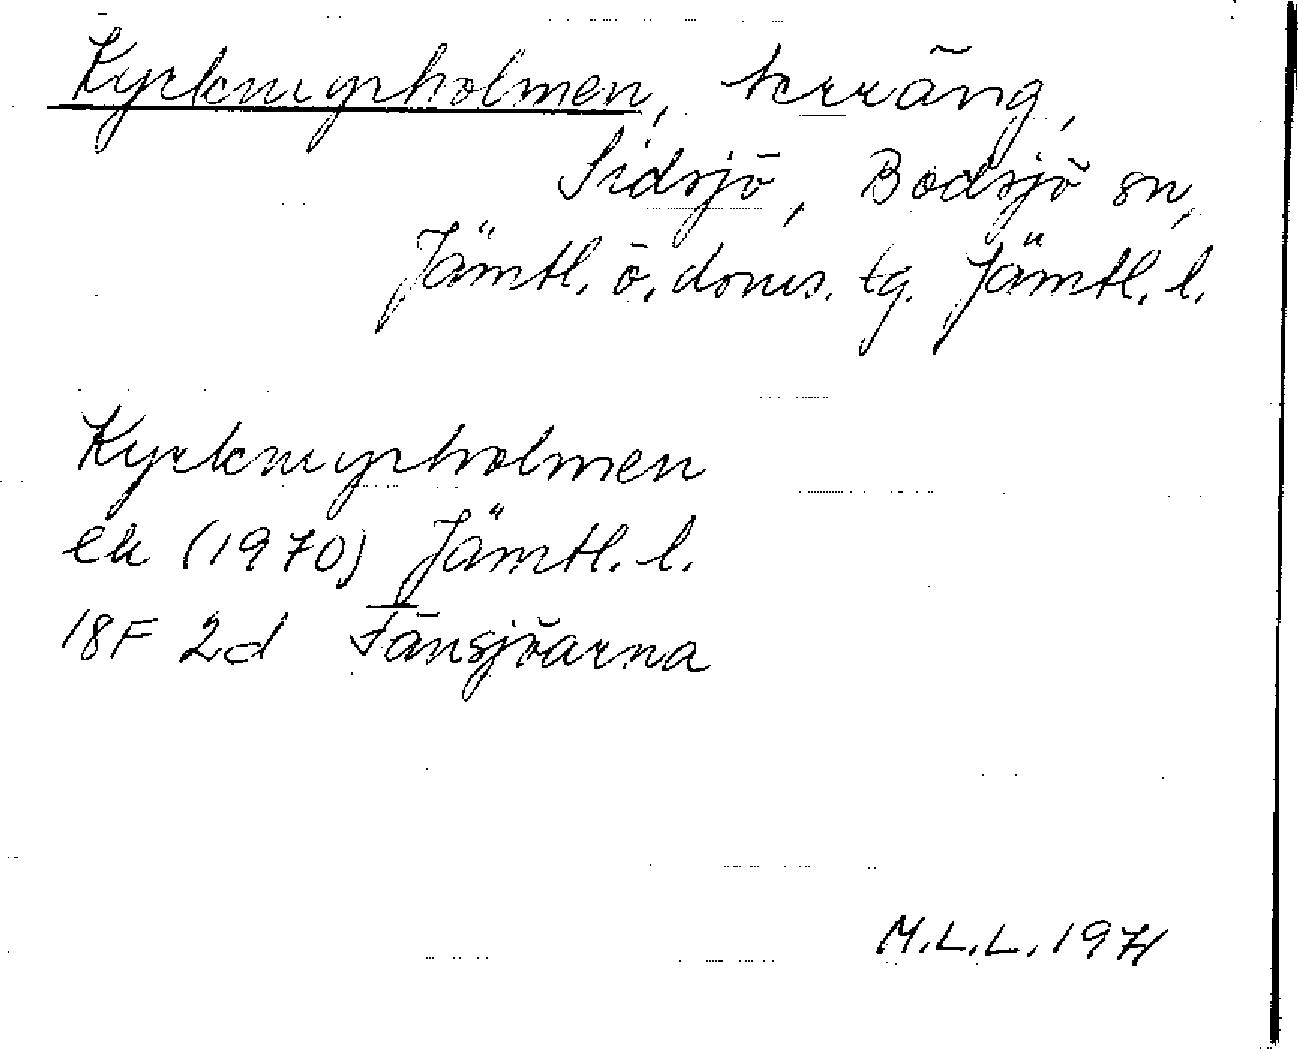 Kyrkmyrholmen, terräng,
Sidsjö, Bodsjö sn,
Jämtl. ö. doms. tg. Jämtl. l.
Kyrkmyrholmen
ek (1970) Jämtl. l.
18F 2d Fänsjöarna
M.L.L. 1971